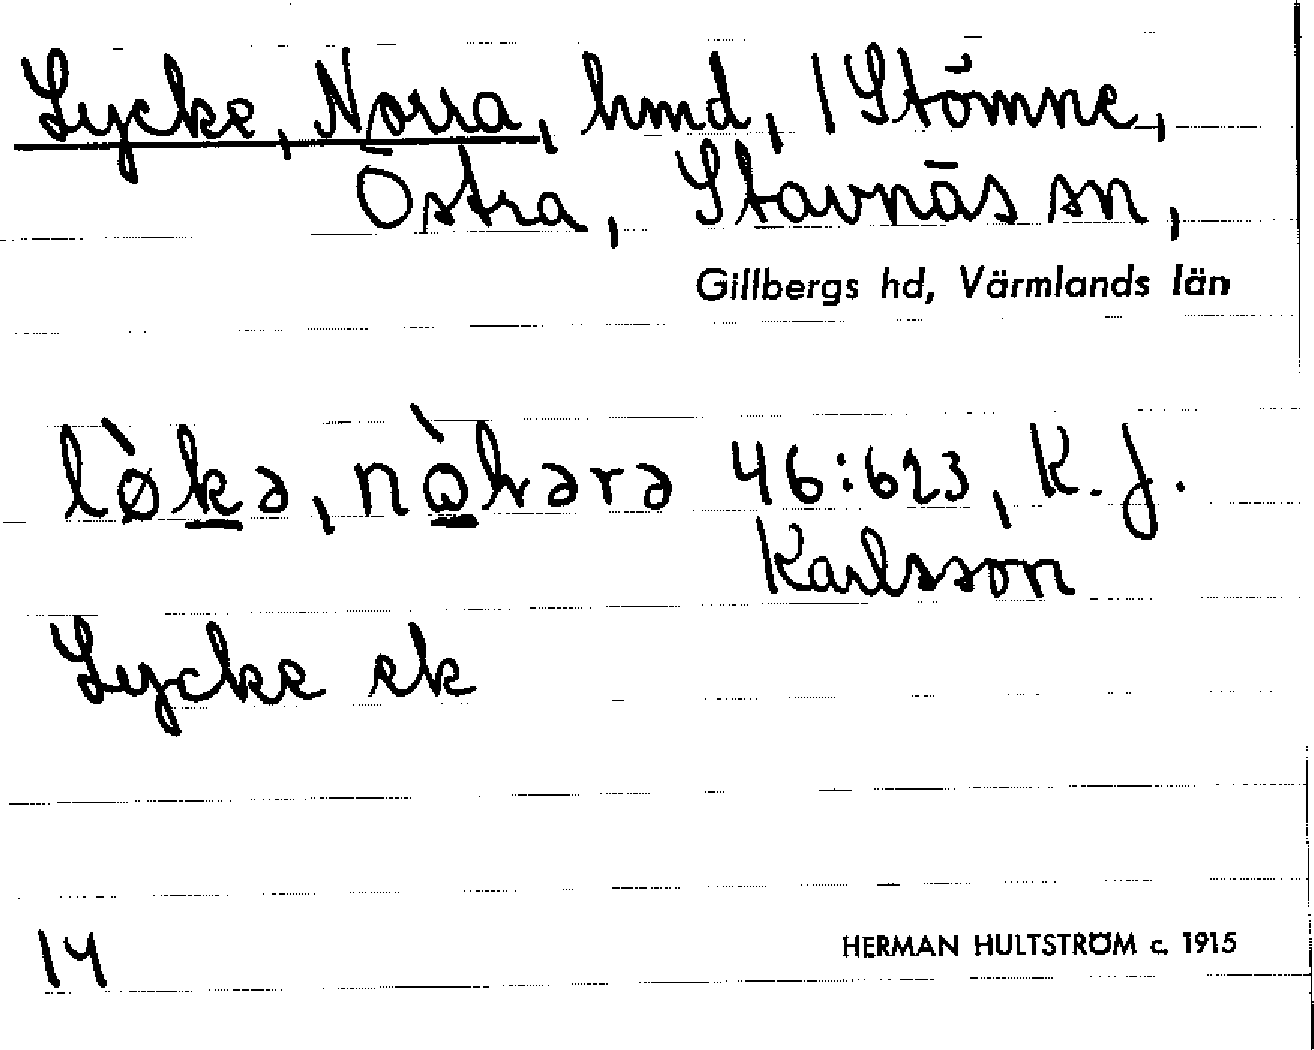 Lycke, Norra, hmd, 1 Stömne,
Östra, Stavnäs sn,
Gillbergs hd, Värmlands län
lø̀kə, nò̱hərə 46:623, K. J.
Karlsson
Lycke ek
14
HERMAN HULTSTRÖM c. 1915